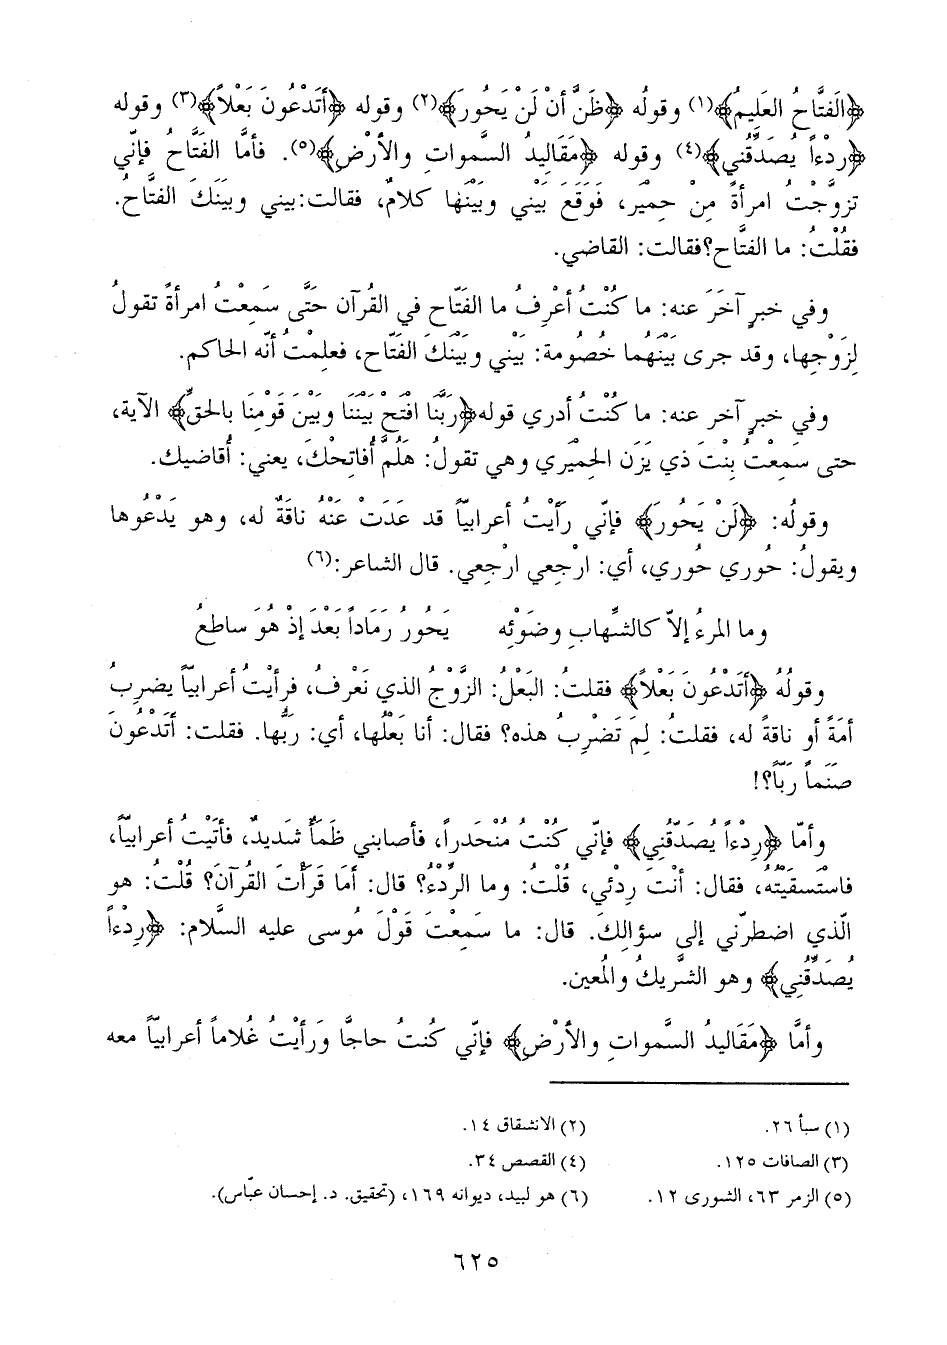 ﴿الفَتَّاحُ العَلِيمُ﴾(١) وقولُه ﴿ظَنَّ أنْ لَنْ يَحُورَ﴾(٢) وقوله ﴿أتَدْعُونَ بَعْلاً﴾(٣) وقوله
﴿رِدْءاً يُصَدِّقُني﴾(٤) وقوله ﴿مَقَاليدُ السَّمواتِ والأرْضِ﴾(٥). فأمَّا الفَتَّاحُ فإنّي
تزوَّجْتُ امرأةً مِنْ حِمْيَر، فَوَقَعَ بَيْني وبَيْنَها كلامٌ، فقالت:بيني وبَيْنَكَ الفتَّاحُ.
فقُلْتُ: ما الفتَّاح؟فقالت: القاضي.
وفي خبرٍ آخَرَ عنه: ما كُنْتُ أعْرِفُ ما الفَتّاح في القُرآن حتَّى سَمِعْتُ امرأةً تقولُ
لِزَوْجِها، وقد جرى بَيْنَهُما خُصُومة: بَيْني وبَيْنَكَ الفَتّاح، فعلِمْتُ أنّه الحاكم.
وفي خبرٍ آخر عنه: ما كُنْتُ أدري قوله﴿رَبَّنَا افتَحْ بيْننَا وبيْنَ قَوْمِنَا بالحقِّ﴾ الآية،
حتى سَمِعْتُ بِنْتَ ذي يَزَن الحِمْيَري وهي تقولُ: هَلُمَّ أُفاتِحْكَ، يعني: أُقاضيك.
وقولُه: ﴿لَنْ يَحُورَ﴾ فإنّي رَأَيْتُ أعرابيّاً قد عَدَتْ عَنْهُ ناقَةٌ له، وهو يَدْعُوها
ويقولُ: حُوري حُوري، أي: ارْجعي ارْجعي. قال الشاعر:(٦)
وما المرءُ إلاّ كالشِّهابِ وضَوْئِه يَحُورُ رَمَاداً بَعْدَ إذْ هُوَ ساطعُ
وقولُهُ ﴿أتَدْعُونَ بَعْلاً﴾ فقلتُ: البَعْلُ: الزَّوْجُ الذي نَعْرِف، فرأيْتُ أعرابيّاً يضرِبُ
أمَةً أو ناقةً له، فقلتُ: لِمَ تَضْرِبُ هذه؟ فقال: أنا بَعْلُها، أي: رَبُّها. فقلت: أتَدْعُونَ
صَنَماً رَبّاً؟!
وأمّا ﴿رِدْءاً يُصَدِّقُني﴾ فإنّي كُنْتُ مُنْحَدراً، فأصابني ظَمَأٌ شَديدٌ، فأتَيْتُ أعرابيّاً،
فاسْتسقَيْتُه، فقال: أنْتَ رِدْئي، قلتُ: وما الرِّدْءُ؟ قال: أمَا قرَأْتَ القُرآنَ؟ قُلْتُ: هو
الّذي اضطرّني إلى سؤالِكَ. قال: ما سَمِعْتَ قَوْلَ مُوسى عليه السَّلام: ﴿رِدْءاً
يُصَدِّقُني﴾ وهو الشَّريكُ والمُعين.
وأمَّا ﴿مَقَاليدُ السَّمواتِ والأرْضِ﴾ فإنّي كُنتُ حاجّاً ورَأيْتُ غُلاماً أعرابيّاً معه
(١) سبأ ٢٦. (٢) الانشقاق ١٤.
(٣) الصافات ١٢٥. (٤) القصص ٣٤.
(٥) الزمر ٦٣، الشورى ١٢. (٦) هو لبيد، ديوانه ١٦٩، (تحقيق. د. إحسان عبّاس).
٦٢٥